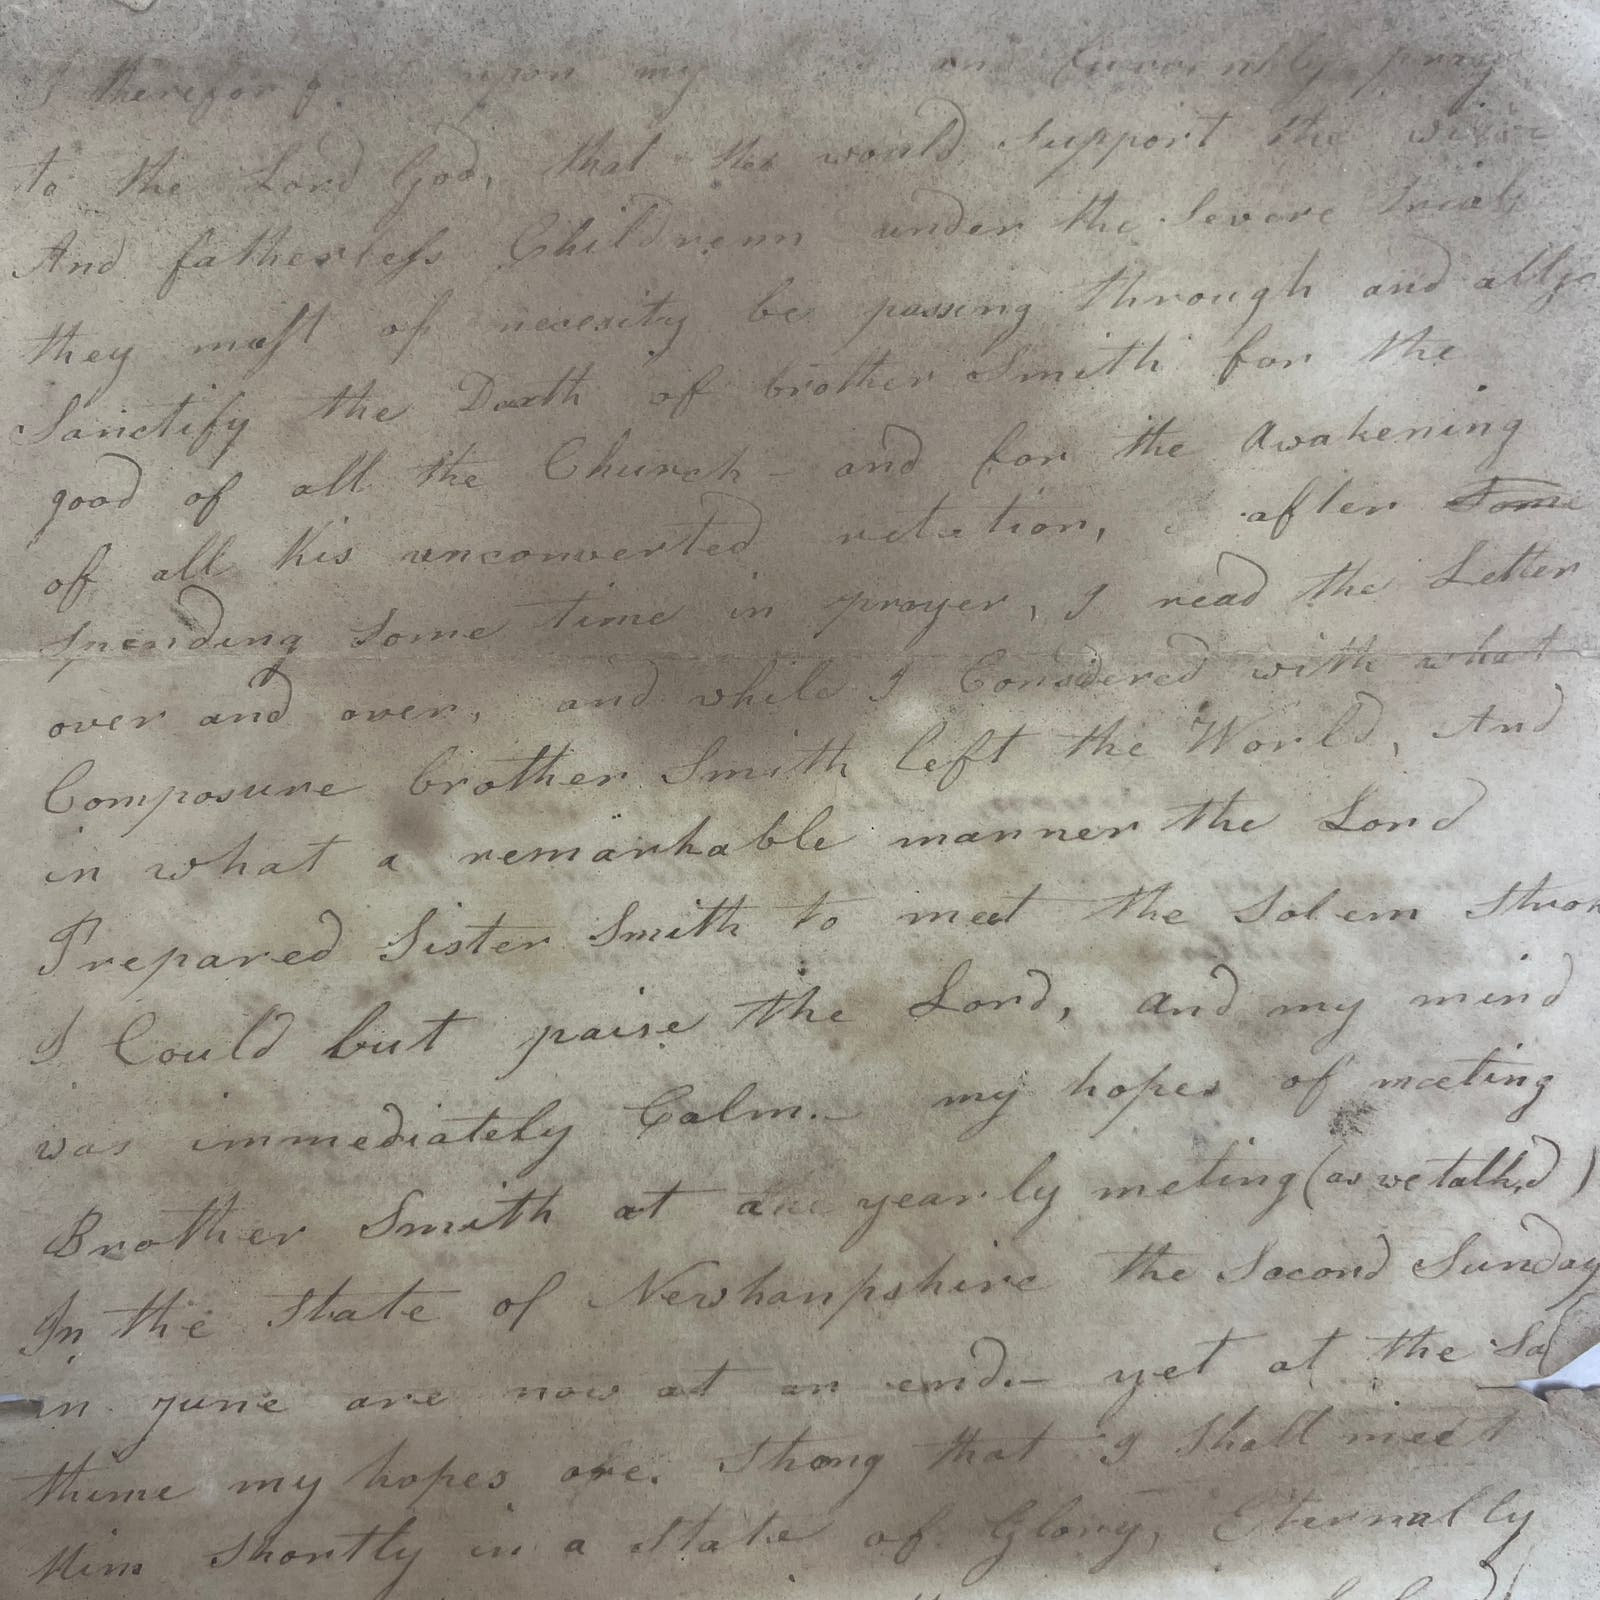 I therefor upon my and pray
to the Lord God, that he would Support the
And fatherless Childrenn under the Severe trial,
they most of necesity be passing through and allso
Sanctify the Death of brother Smith for the
good of all the Church – and for the Awakening
of all his unconverted relation, after some
spending some time in prayer, I read the Letter
over and over, and while I Considered with what
Composure brother Smith left the World, And
in what a remarkable manner the Lord
Prepared Sister Smith to meet the Solem Strok
I Could but paise the Lord, and my mind
was immediately Calm. – my hopes of meeting
Brother Smith at yearly meting (as we talk,d)
In the State of Newhanpshire the Second Sunday
in June are now at an end. – yet at the Sa
thime my hopes are. Strong that I shall meet
Him shortly in a State of Glory, Eternally